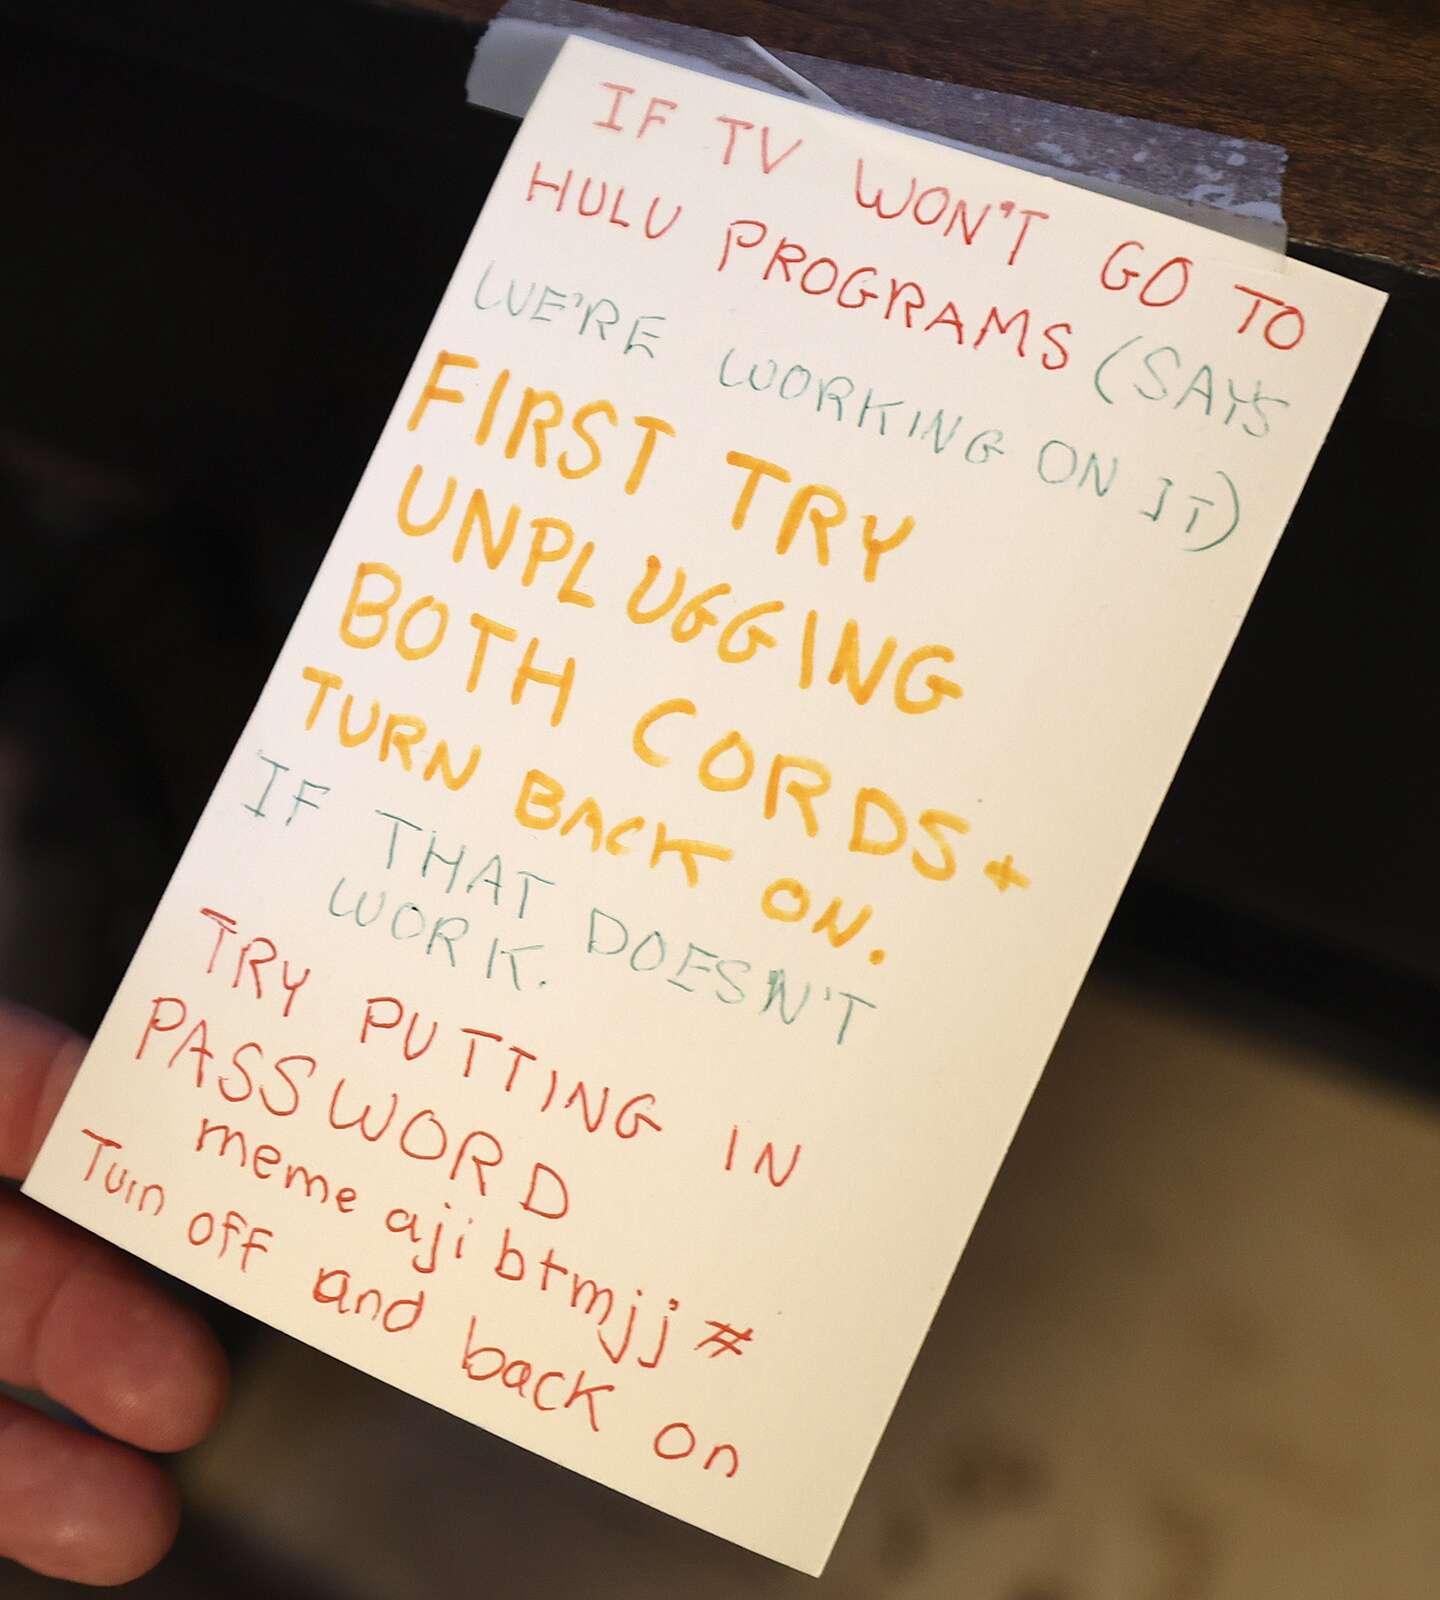 IF TV WON'T GO TO
HULU PROGRAMS (SAYS
WE'RE WORKING ON IT)
FIRST TRY
UNPLUGGING
BOTH CORDS +
TURN BACK ON.
IF THAT DOESN'T
WORK.
TRY PUTTING IN
PASSWORD
meme aji btmjj #
Turn off and back on